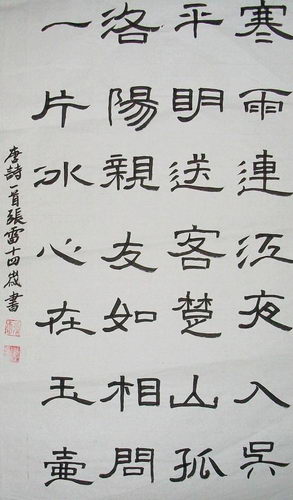 寒雨連江夜入吳
平明送客楚山孤
洛陽親友如相問
一片冰心在玉壺
唐詩一首張雷十四歲書